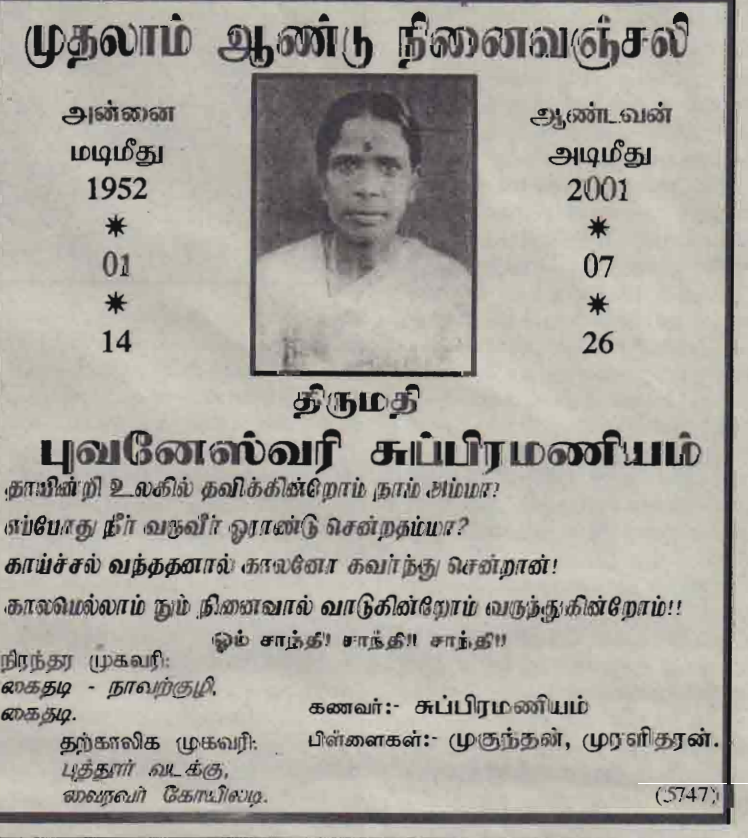 முதலாம் ஆண்டு நினைவஞ்சலி
அன்னை
மடிமீது
1952
*
01
*
14
ஆண்டவன்
அடிமீது
2001
*
07
*
26
திருமதி
புவனேஸ்வரி சுப்பிரமணியம்
தாயின்றி உலகில் தவிக்கின்றோம் நாம் அம்மா!
எப்போது நீர் வருவீர் ஓராண்டு சென்றதம்மா?
காய்ச்சல் வந்ததனால் காலனோ கவர்ந்து சென்றான்!
காலமெல்லாம் நும் நினைவால் வாடுகின்றோம் வருந்துகின்றோம்!!
ஓம் சாந்தி! சாந்தி!! சாந்தி!!
நிரந்தர முகவரி:
கைதடி - நாவற்குழி,
கைதடி.
தற்காலிக முகவரி:
புத்தூர் வடக்கு,
வைரவர் கோயிலடி.
கணவர்:- சுப்பிரமணியம்
பிள்ளைகள்:- முகுந்தன், முரளிதரன்.
(5747)